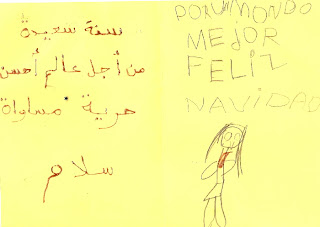 سنة سعيدة
من أجل عالم أحسن
حرية * مساواة
سلام
POR UN MONDO
MEJOR
FELIZ
NAVIDAD